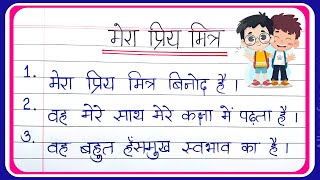 मेरा प्रिय मित्र
1. मेरा प्रिय मित्र बिनोद है ।
2. वह मेरे साथ मेरे कक्षा में पढ़ता है ।
3. वह बहुत हँसमुख स्वभाव का है ।